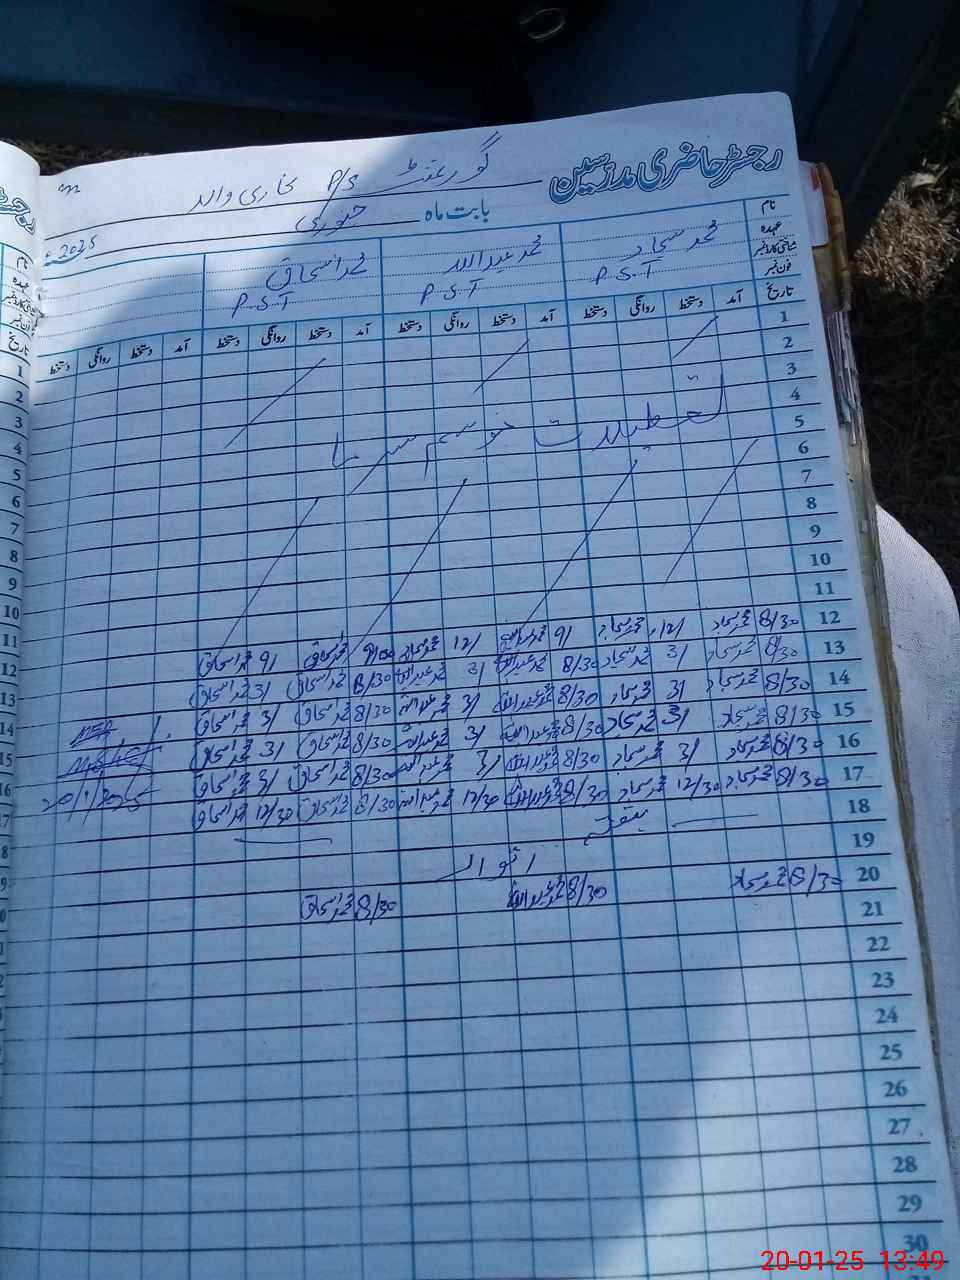 رجسٹر حاضری مدرسین
گورنمنٹ P/S بخاری والہ
بابت ماہ جنوری 2025
نام محمد سجاد محمد عبداللہ محمد اسحاق
عہدہ P.S.T P.S.T P.S.T
شناختی کارڈ نمبر
فون نمبر
تاریخ آمد دستخط روانگی دستخط آمد دستخط روانگی دستخط آمد دستخط روانگی دستخط آمد دستخط روانگی دستخط
1
2
3
4
تعطیلات موسم سرما
5
6
7
8
9
10
11
12
13 8/30 محمد سجاد 12/ محمد سجاد 9/ محمد عبداللہ 12/ 9/00 محمد اسحاق 9/ محمد اسحاق
14 8/30 محمد سجاد 3/ محمد سجاد 8/30 محمد عبداللہ 3/ محمد عبداللہ 8/30 محمد اسحاق 3/ محمد اسحاق
15 8/30 محمد سجاد 3/ محمد سجاد 8/30 محمد عبداللہ 3/ محمد عبداللہ 8/30 محمد اسحاق 3/ محمد اسحاق
16 8/30 محمد سجاد 3/ محمد سجاد 8/30 محمد عبداللہ 3/ محمد عبداللہ 8/30 محمد اسحاق 3/ محمد اسحاق
17 8/30 محمد سجاد 3/ محمد سجاد 8/30 محمد عبداللہ 3/ محمد عبداللہ 8/30 محمد اسحاق 3/ محمد اسحاق
20/1/2025
18 8/30 محمد سجاد 12/30 محمد سجاد 8/30 محمد عبداللہ 12/30 محمد عبداللہ 8/30 محمد اسحاق 12/30 محمد اسحاق
19 اتوار
20 8/30 محمد سجاد 8/30 محمد عبداللہ 8/30 محمد اسحاق
21
22
23
24
25
26
27
28
29
30
20-01-25 13:49